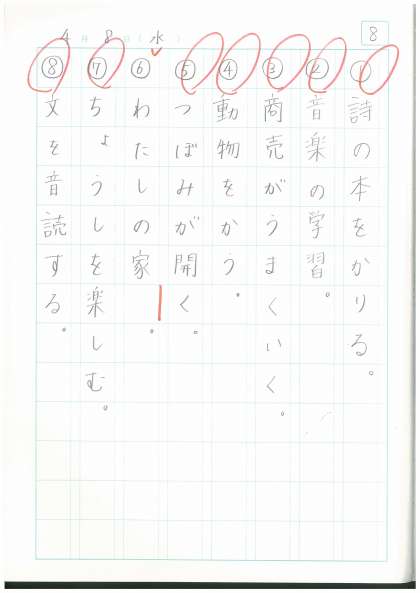 4月8日(水)
8
①詩の本をかりる。
②音楽の学習。
③商売がうまくいく。
④動物をかう。
⑤つぼみが開く。
⑥わたしの家。
⑦ちょうしを楽しむ。
⑧文を音読する。